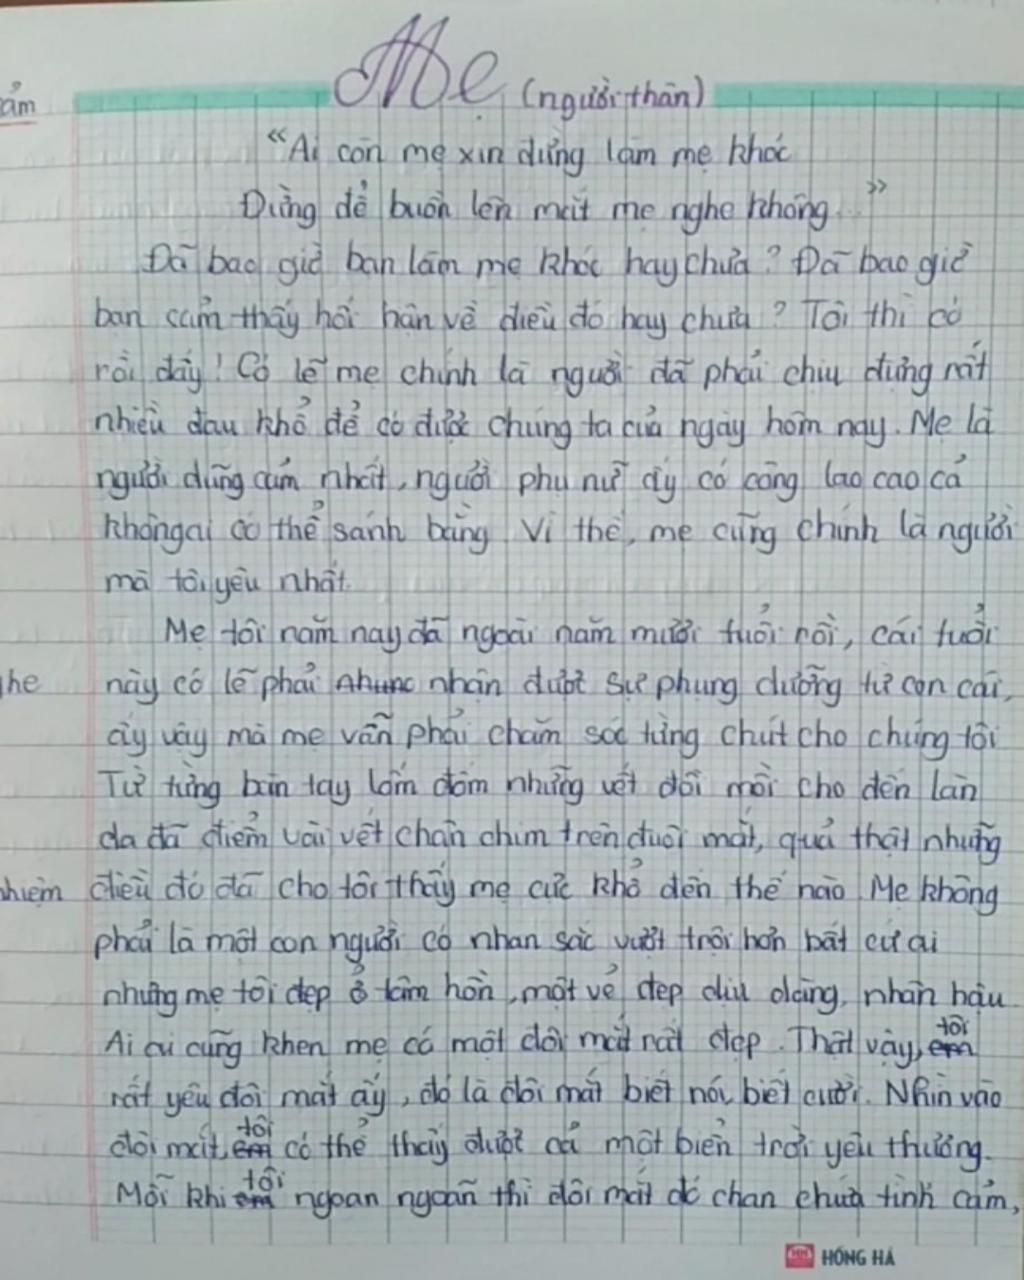 Mẹ (người thân)
ảm
"Ai còn mẹ xin đừng làm mẹ khóc
Đừng để buồn lên mắt mẹ nghe không..."
Đã bao giờ bạn làm mẹ khóc hay chưa? Đã bao giờ
bạn cảm thấy hối hận về điều đó hay chưa? Tôi thì có
rồi đấy! Có lẽ mẹ chính là người đã phải chịu đựng rất
nhiều đau khổ để có được chúng ta của ngày hôm nay. Mẹ là
người dũng cảm nhất, người phụ nữ ấy có công lao cao cả
không ai có thể sánh bằng. Vì thế, mẹ cũng chính là người
mà tôi yêu nhất.
Mẹ tôi năm nay đã ngoài năm mươi tuổi rồi, cái tuổi
ghe
này có lẽ phải nhận được sự phụng dưỡng từ con cái,
ấy vậy mà mẹ vẫn phải chăm sóc từng chút cho chúng tôi
Từ từng bàn tay lốm đốm những vết đồi mồi cho đến làn
da đã điểm vài vết chân chim trên đuôi mắt, quả thật những
nhiệm
điều đó đã cho tôi thấy mẹ cực khổ đến thế nào. Mẹ không
phải là một con người có nhan sắc vượt trội hơn bất cứ ai
nhưng mẹ tôi đẹp ở tâm hồn, một vẻ đẹp dịu dàng, nhân hậu
Ai ai cũng khen mẹ có một đôi mắt rất đẹp. Thật vậy, tôi
rất yêu đôi mắt ấy, đó là đôi mắt biết nói, biết cười. Nhìn vào
đôi mắt, tôi có thể thấy được cả một biển trời yêu thương.
Mỗi khi tôi ngoan ngoãn thì đôi mắt đó chan chứa tình cảm,
HỒNG HÀ